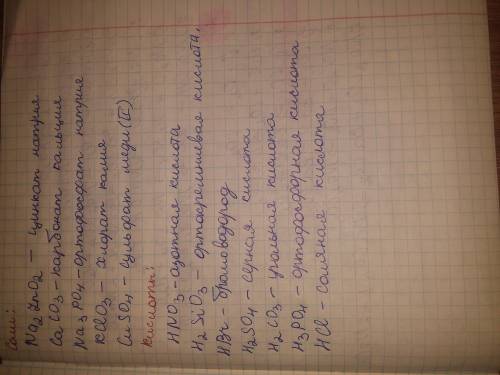 Соли:
Na2ZnO2 – цинкат натрия
CaCO3 – карбонат кальция
Na3PO4 – ортофосфат натрия
KClO3 – хлорат калия
CuSO4 – сульфат меди (II)
Кислоты:
HNO3 – азотная кислота
H2SiO3 – ортокремниевая кислота,
HBr – бромоводород
H2SO4 – серная кислота
H2CO3 – угольная кислота
H3PO4 – ортофосфорная кислота
HCl – соляная кислота